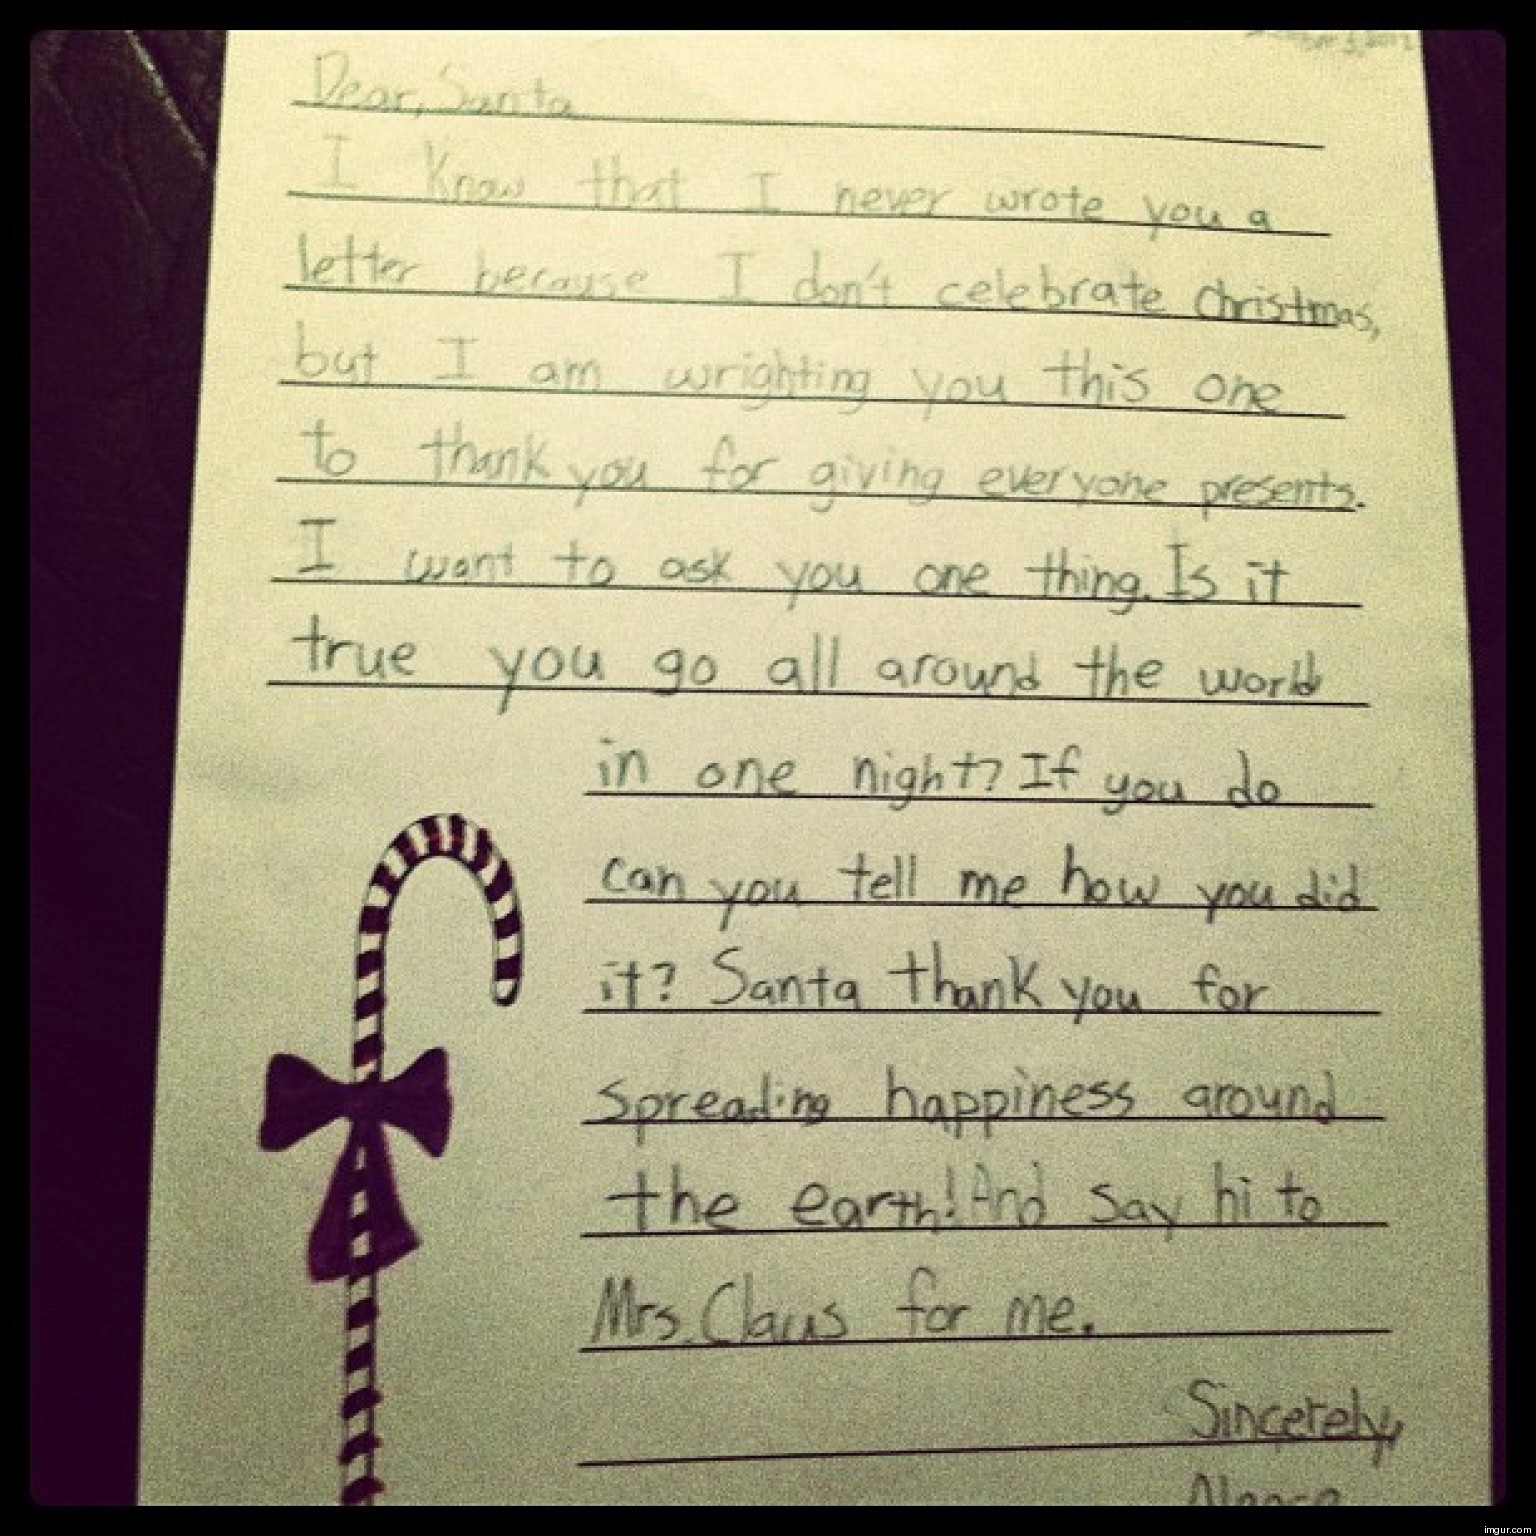 Dear, Santa
I know that I never wrote you a
letter because I don't celebrate Christmas,
but I am wrighting you this one
to thank you for giving everyone presents.
I want to ask you one thing. Is it
true you go all around the world
in one night? If you do
can you tell me how you did
it? Santa thank you for
spreading happiness around
the earth! And say hi to
Mrs. Claus for me.
Sincerely,
imgur.com